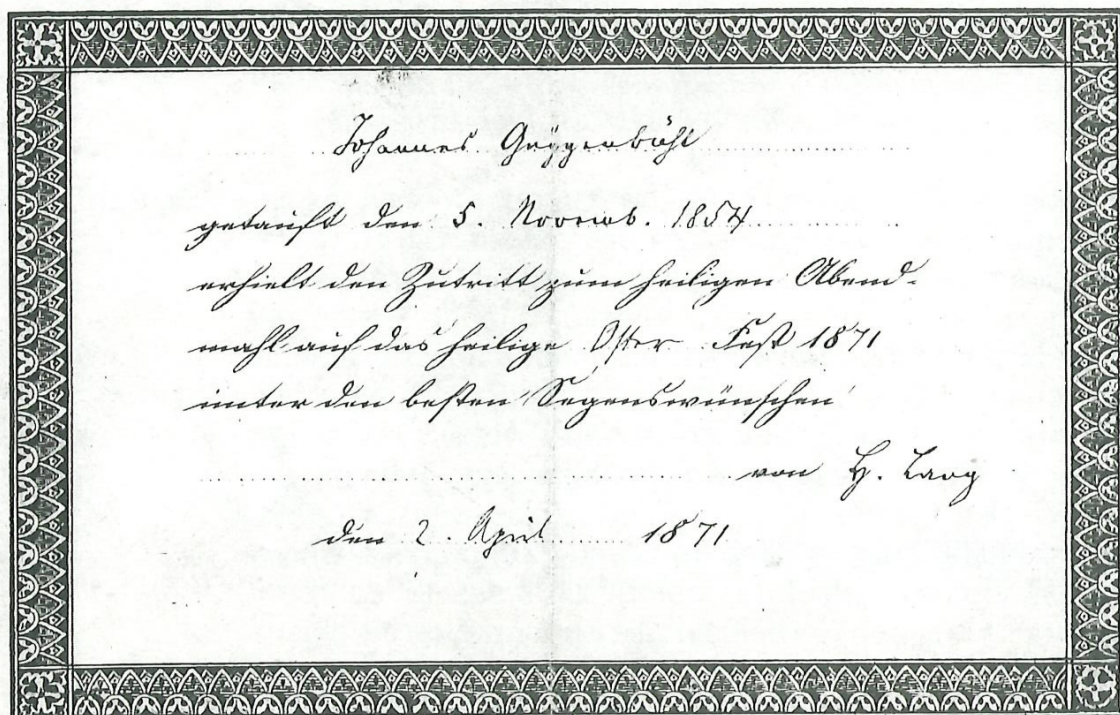 Johannes Guggenbühl
getauft den 5. Novemb. 1854
erhielt den Zutritt zum heiligen Abend-
mahl auf das heilige Oster Fest 1871
unter den besten Segenswünschen
von H. Lang
den 2. April 1871